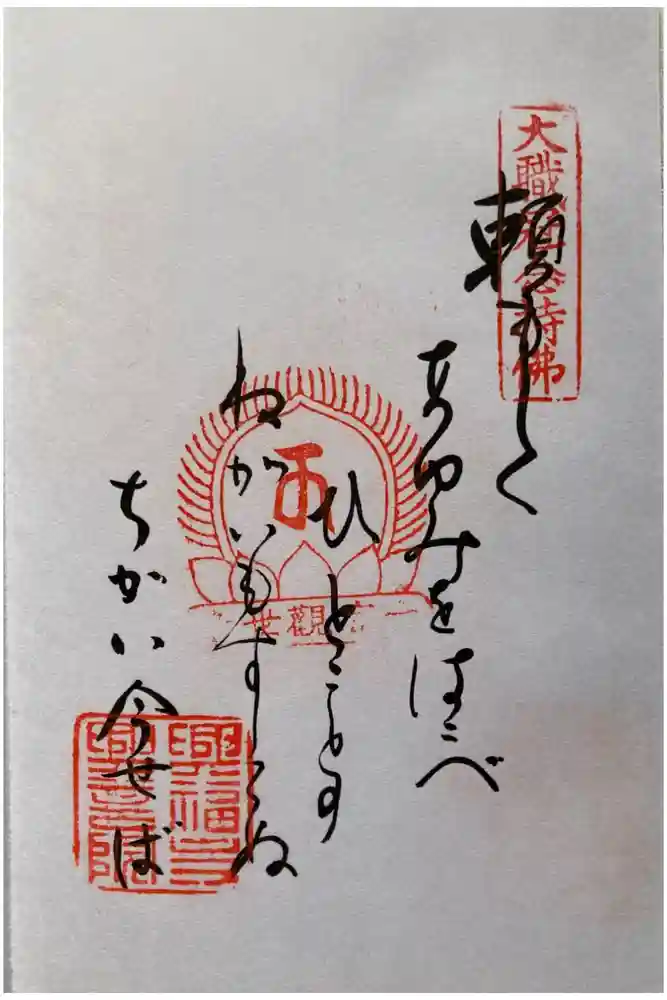 大職冠念持佛
頼もしく
あゆみをはこべ
ひとことの
ねがいもすてぬ
ちかい今せば
一言觀世
興福寺